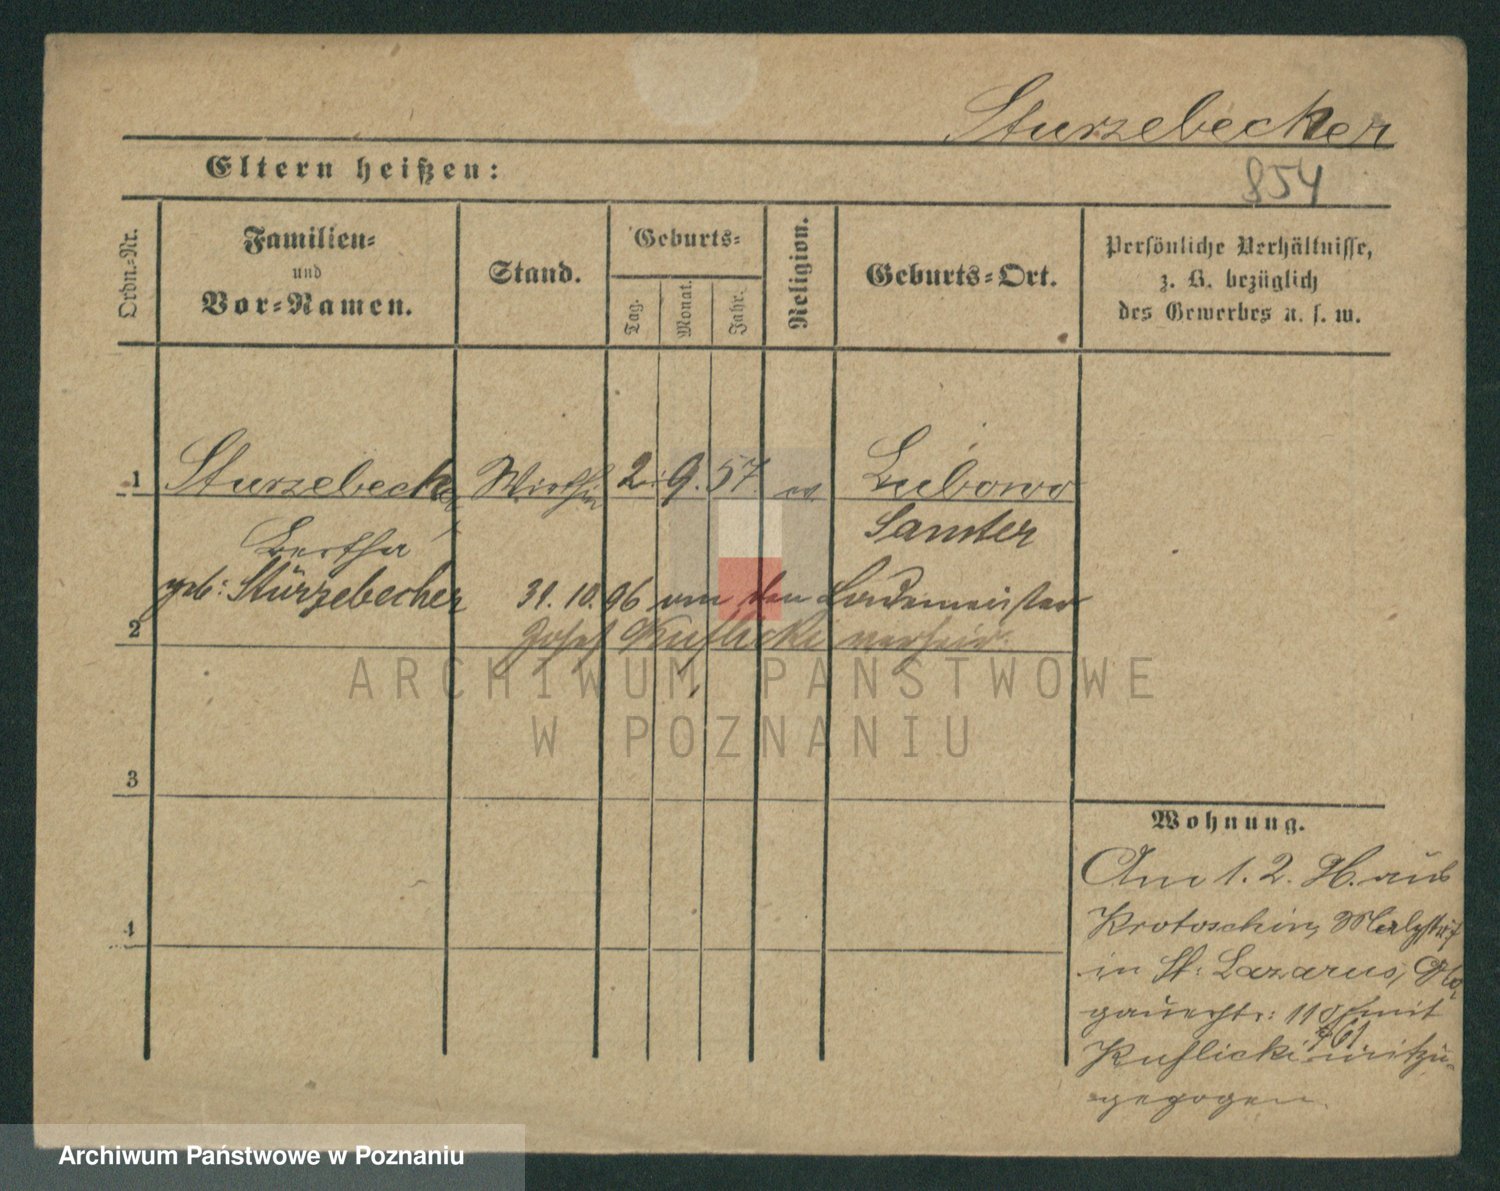 Sturzebecker
Eltern heißen:
854
Ordn.-Nr.
Familien-
und
Vor-Namen.
Stand.
Geburts-
Tag.
Monat.
Jahr.
Religion.
Geburts-Ort.
Persönliche Verhältnisse,
z. B. bezüglich
des Gewerbes u. s. w.
1 Sturzebecker Wirthin 2. 9. 57. ev. Lubowo
Bertha Samter
geb: Stürzebecher 31. 10. 96 an den Lademeister
2 Josef Kuflicki verheir.
ARCHIWUM PAŃSTWOWE
W POZNANIU
3
Wohnung.
Am 1. 2. 96. aus
4 Krotoschin,
in St: Lazarus, Glo-
gauerstr: 110 mit
Kuflicki mitzu-
gezogen.
Archiwum Państwowe w Poznaniu